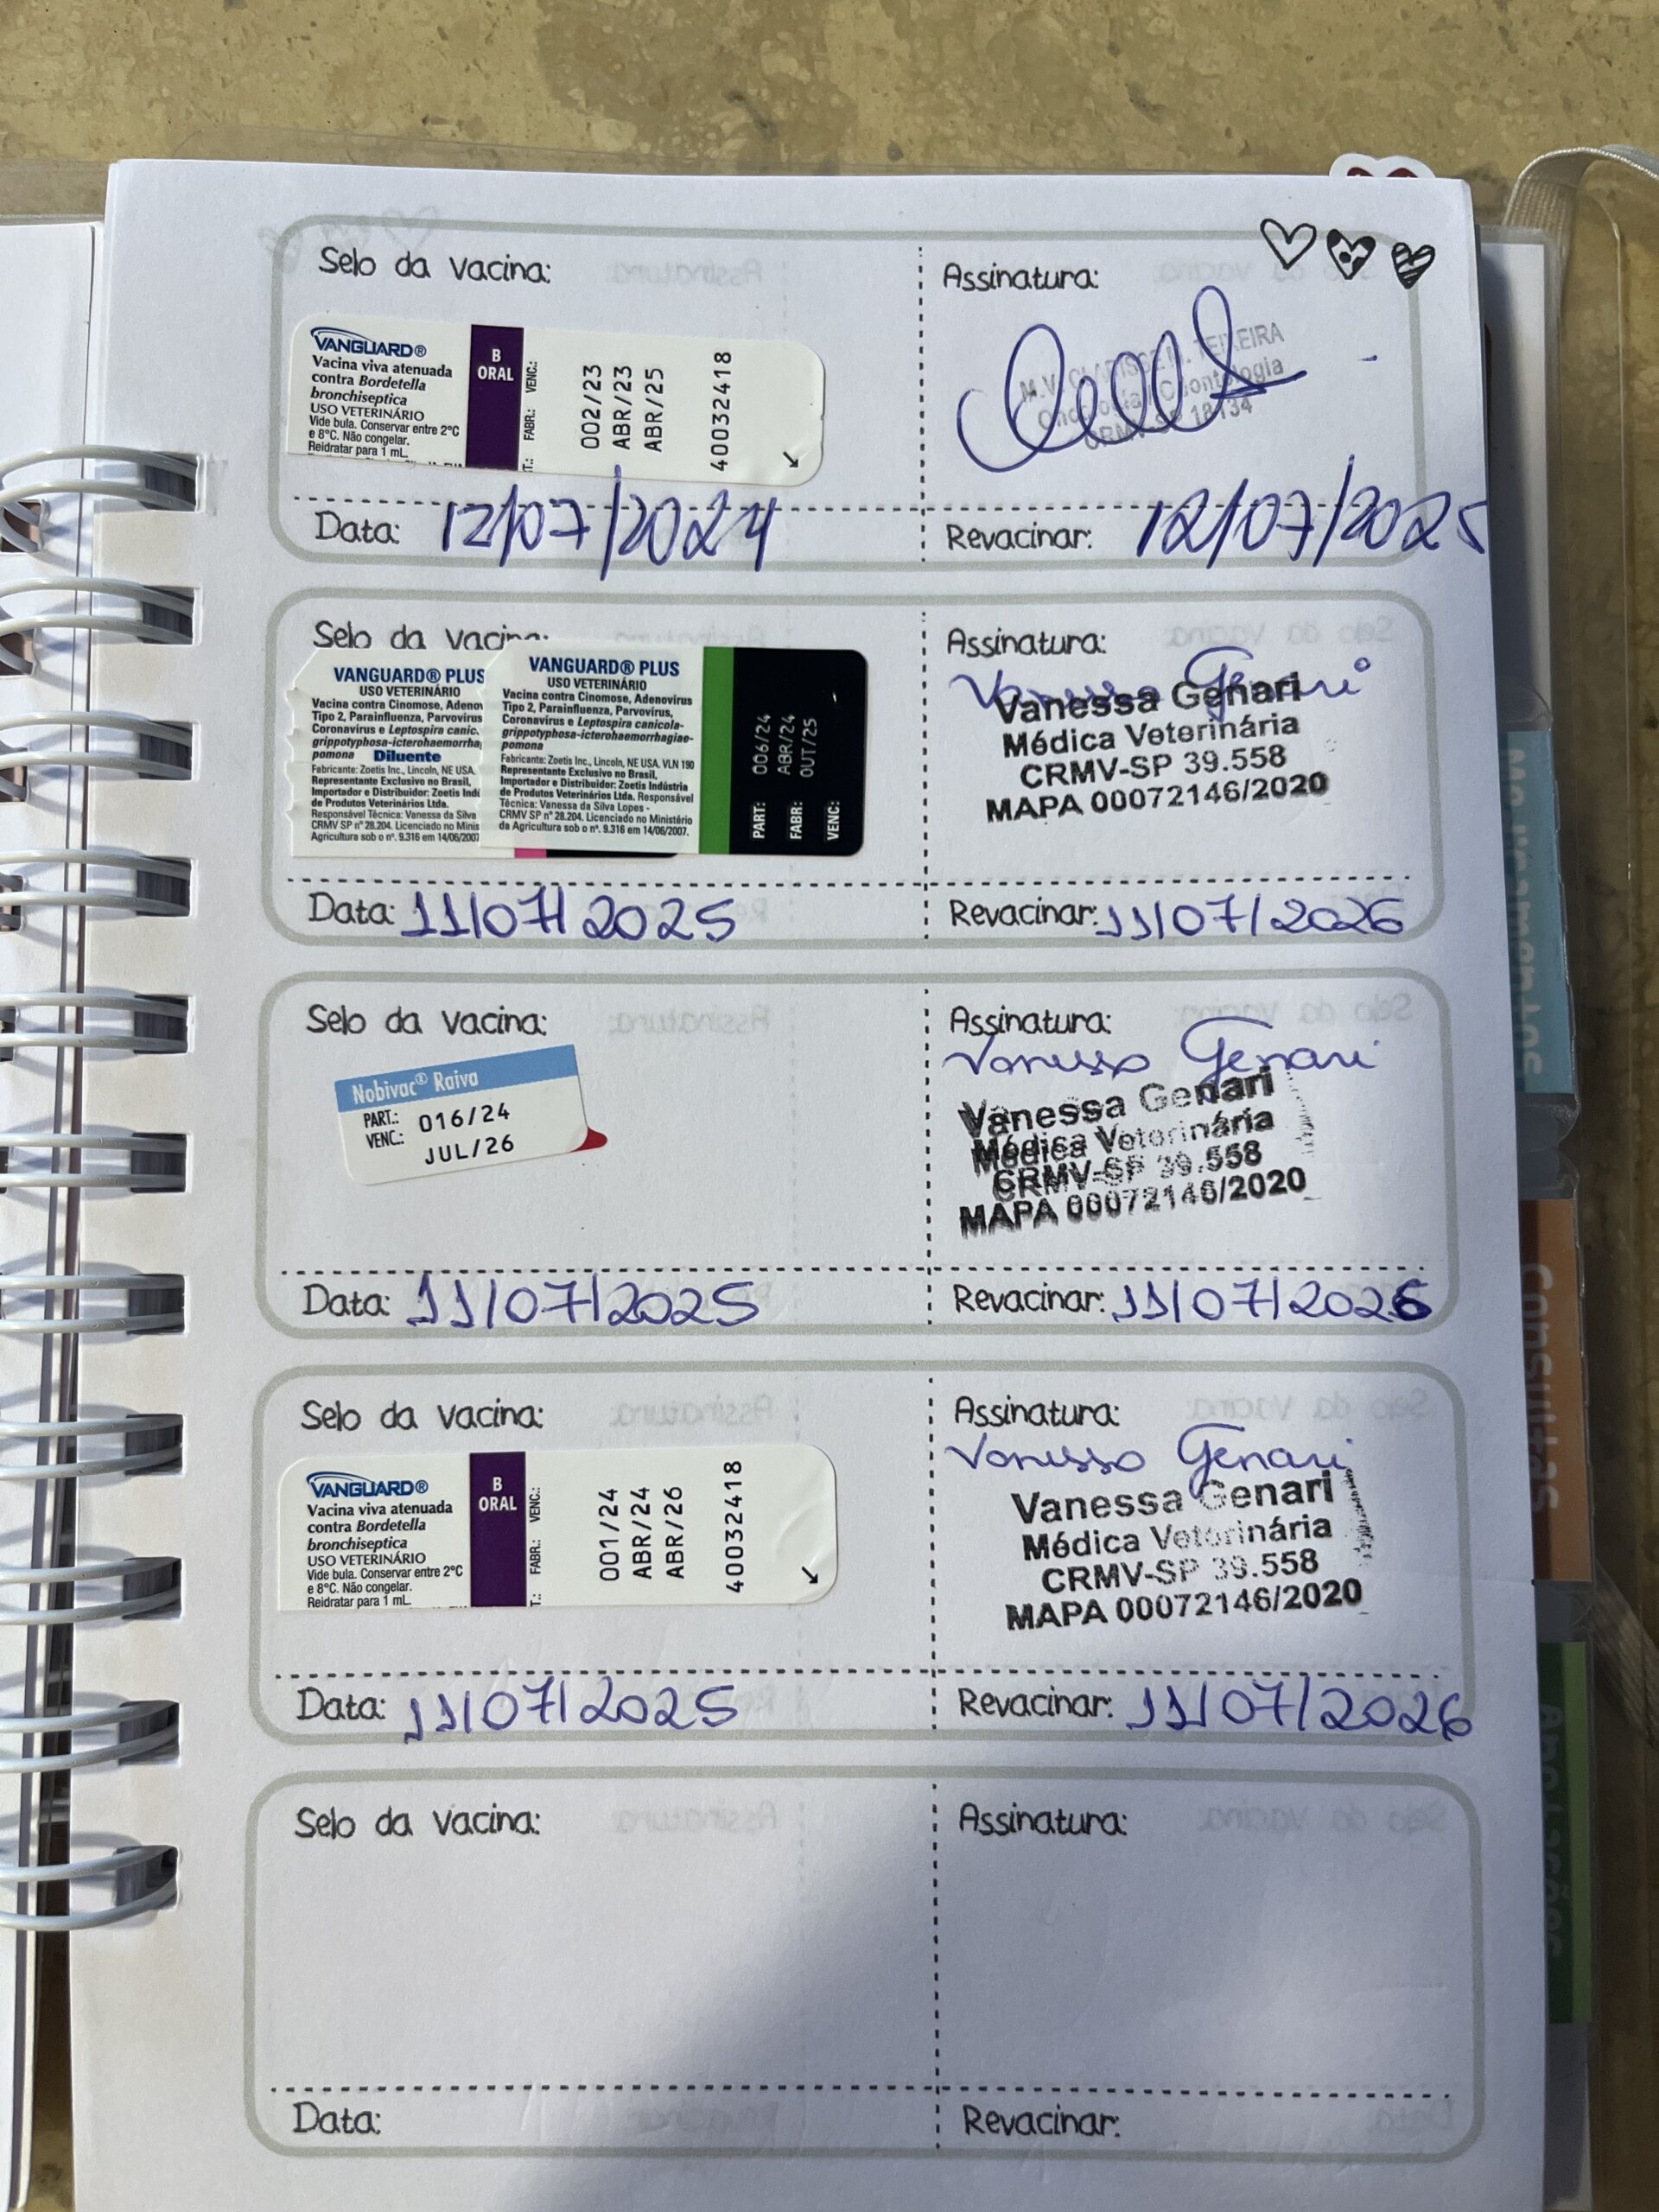 Selo da vacina:
VANGUARD®
Vacina viva atenuada
contra Bordetella
bronchiseptica
USO VETERINÁRIO
Vide bula. Conservar entre 2°C
e 8°C. Não congelar.
Reidratar para 1 mL.
B
ORAL
T.: FABR.: VENC.:
002/23
ABR/23
ABR/25
40032418
Assinatura:
TEIXEIRA
Odontologia
CRMV-SP 18134
Data: 12/07/2024
Revacinar: 12/07/2025
Selo da vacina:
VANGUARD® PLUS
USO VETERINÁRIO
Vacina contra Cinomose, Adenov
Tipo 2, Parainfluenza, Parvovírus
Coronavírus e Leptospira canic
grippotyphosa-icterohaemorrha
pomona Diluente
Fabricante: Zoetis Inc., Lincoln, NE USA.
Representante Exclusivo no Brasil,
Importador e Distribuidor: Zoetis Indú
de Produtos Veterinários Ltda.
Responsável Técnica: Vanessa da Silva
CRMV SP nº 28.204. Licenciado no Minis
Agricultura sob o nº. 9.316 em 14/06/2007
VANGUARD® PLUS
USO VETERINÁRIO
Vacina contra Cinomose, Adenovírus
Tipo 2, Parainfluenza, Parvovírus,
Coronavírus e Leptospira canicola-
grippotyphosa-icterohaemorrhagiae-
pomona
Fabricante: Zoetis Inc., Lincoln, NE USA. VLN 190
Representante Exclusivo no Brasil,
Importador e Distribuidor: Zoetis Indústria
de Produtos Veterinários Ltda. Responsável
Técnica: Vanessa da Silva Lopes -
CRMV SP nº 28.204. Licenciado no Ministério
da Agricultura sob o nº. 9.316 em 14/06/2007.
PART: 006/24
FABR: ABR/24
VENC: OUT/25
Assinatura:
Vanessa Genari
Vanessa Genari
Médica Veterinária
CRMV-SP 39.558
MAPA 00072146/2020
Data: 11/07/2025
Revacinar: 11/07/2026
Selo da vacina:
Nobivac® Raiva
PART.: 016/24
VENC.: JUL/26
Assinatura:
Vanessa Genari
Vanessa Genari
Médica Veterinária
CRMV-SP 39.558
MAPA 00072146/2020
Data: 11/07/2025
Revacinar: 11/07/2026
Selo da vacina:
VANGUARD®
Vacina viva atenuada
contra Bordetella
bronchiseptica
USO VETERINÁRIO
Vide bula. Conservar entre 2°C
e 8°C. Não congelar.
Reidratar para 1 mL.
B
ORAL
T.: FABR.: VENC.:
001/24
ABR/24
ABR/26
40032418
Assinatura:
Vanessa Genari
Vanessa Genari
Médica Veterinária
CRMV-SP 39.558
MAPA 00072146/2020
Data: 11/07/2025
Revacinar: 11/07/2026
Selo da vacina:
Assinatura:
Data:
Revacinar:
Medicamentos
Consultas
Anotações